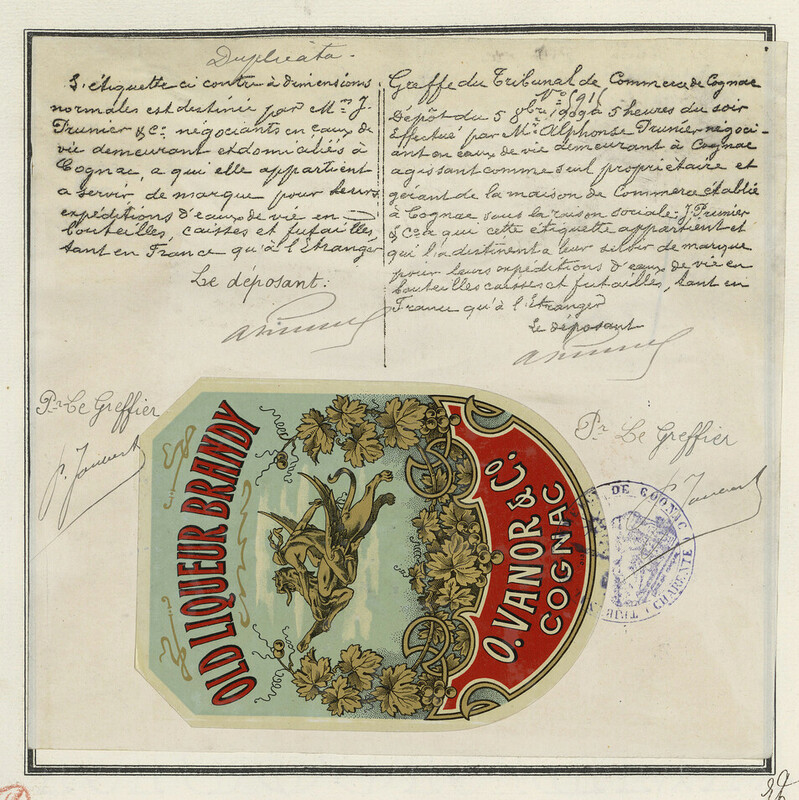 Duplicata.
L'étiquette ci contre à dimensions
normales est destinée par Mrs J.
Prunier & Co. négociants en eaux de
vie demeurant et domiciliés à
Cognac, a qui elle appartient
a servir de marque pour leurs
expéditions d'eaux de vie en
bouteilles, caisses et futailles
tant en France qu'à l'Etranger
Le déposant:
Greffe du Tribunal de Commerce de Cognac
Dépôt du 5 8bre 1909 à 5 heures du soir
Effectué par Mr Alphonse Prunier négoci-
ant en eaux de vie demeurant à Cognac
agissant comme seul propriétaire et
gérant de la maison de Commerce établie
à Cognac sous la raison sociale: J. Prunier
& Co à qui cette étiquette appartient et
qui l'a destinent a leur servir de marque
pour leurs expéditions d'eaux de vie en
bouteilles caisses et futailles, tant en
France qu'à l'Etranger
Le déposant
Pr Le Greffier
Pr Le Greffier
OLD LIQUEUR BRANDY
O. VANOR & Co.
COGNAC
DE COGNAC
CHARENTE